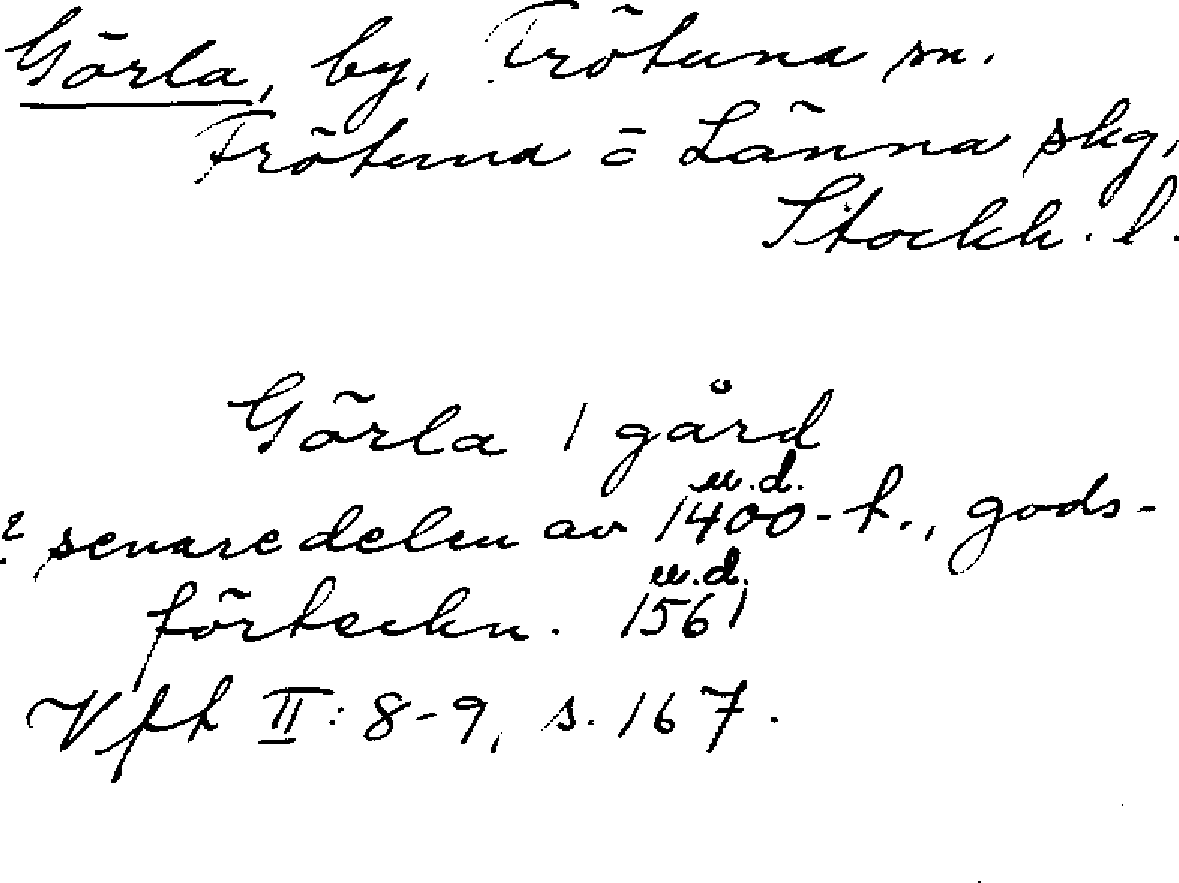 Görla, by, Frötuna sn.
Frötuna o Länna skg,
Stockh. l.
Görla 1 gård
u.d.
? senare delen av 1400-t., gods-
u.d.
förteckn. 1561
Vfft II: 8-9, s. 167.